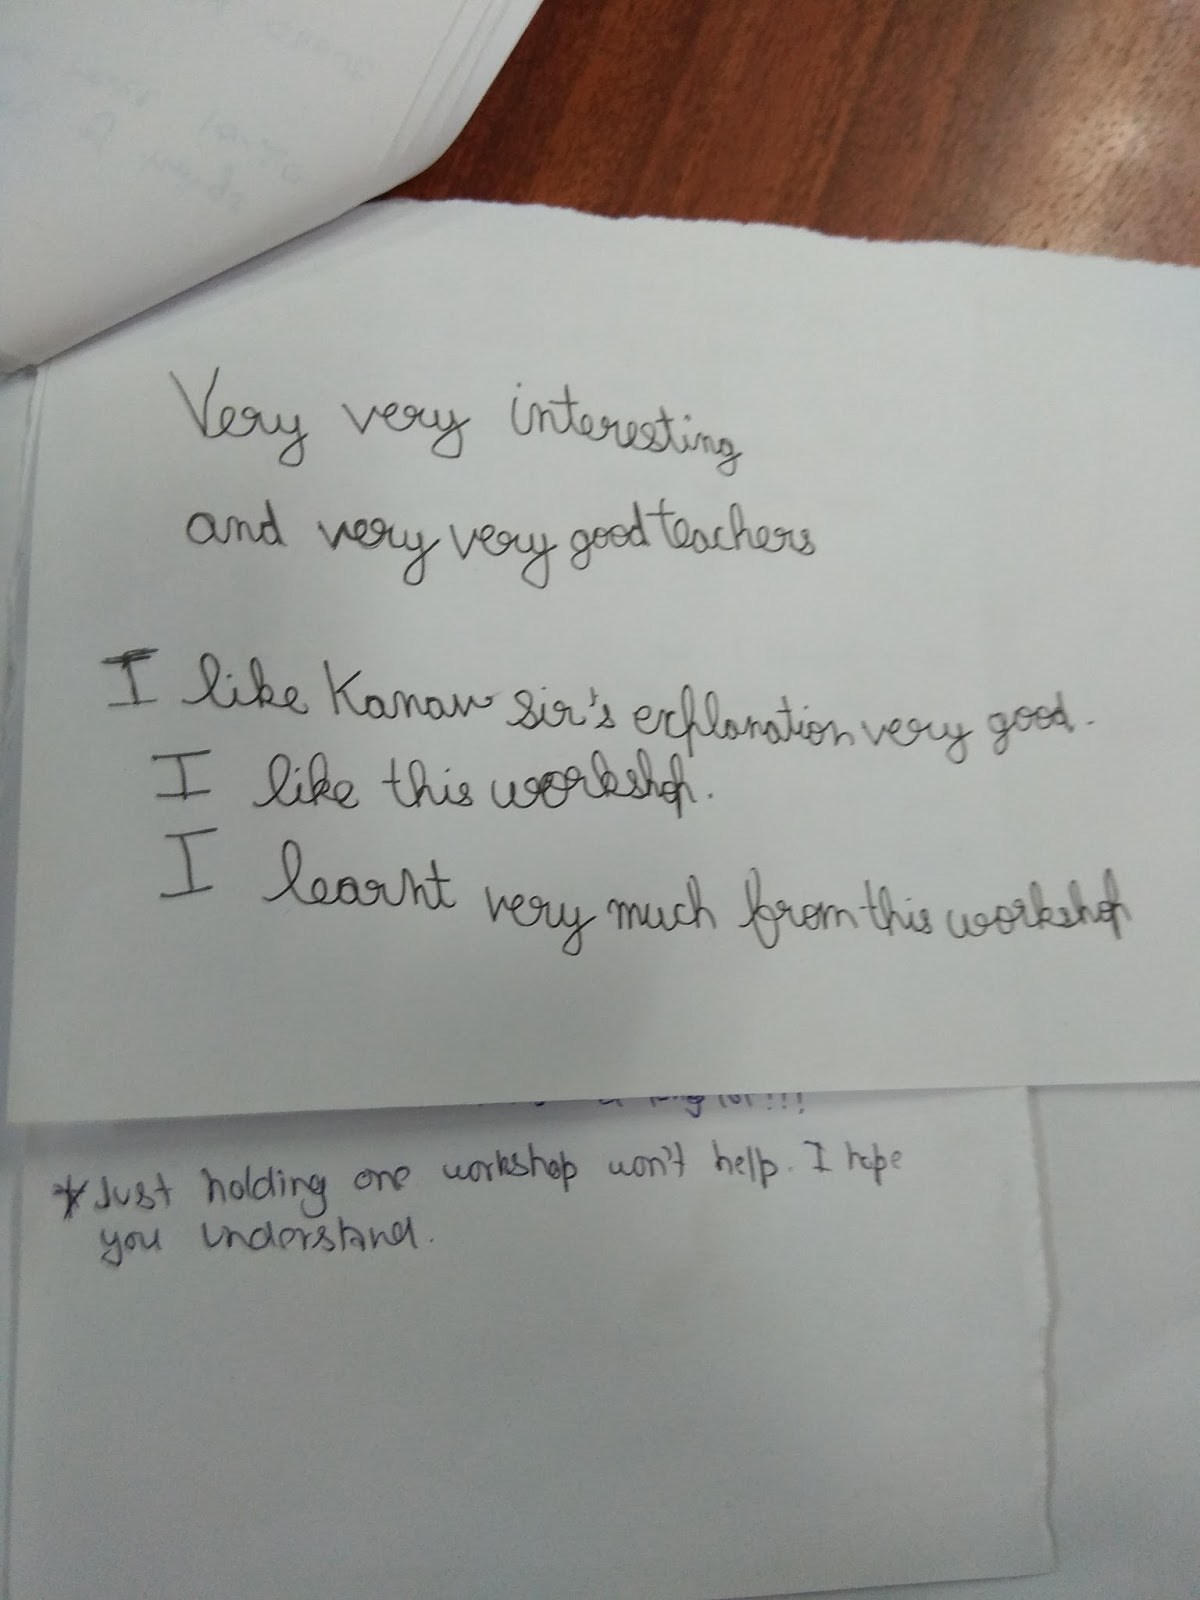 Very very interesting
and very very good teachers
I like Kanav sir's explanation very good.
I like this workshop.
I learnt very much from this workshop
lot!!!
* Just holding one workshop won't help. I hope
you understand.